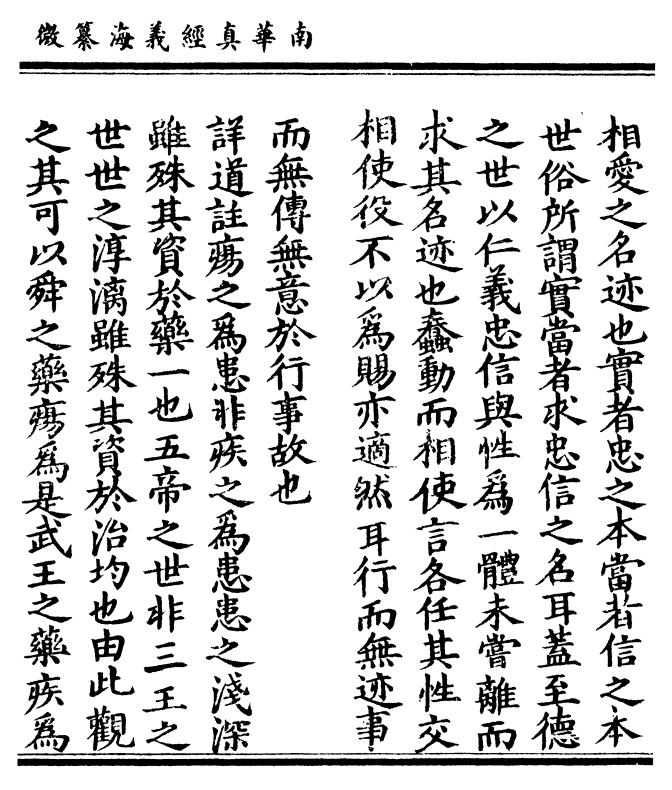 南華真經義海纂微
相愛之名迹也實者忠之本當者信之本
世俗所謂實當者求忠信之名耳蓋至德
之世以仁義忠信與性爲一體未嘗離而
求其名迹也蠢動而相使言各任其性交
相使役不以爲賜亦適然耳行而無迹事
而無傳無意於行事故也
詳道註瘍之爲患非疾之爲患患之淺深
雖殊其資於藥一也五帝之世非三王之
世世之淳漓雖殊其資於治均也由此觀
之其可以舜之藥瘍爲是武王之藥疾爲